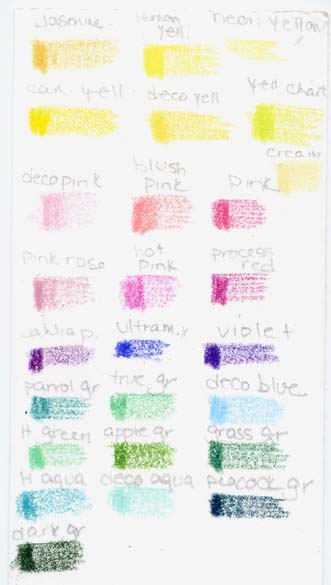 Jasmine lemon yell. neon yellow
can. yell. deco yell yell chart
cream
deco pink blush pink pink
pink rose hot pink process red
dahlia p. ultram.x violet
parrot gr true gr deco blue
H green apple gr grass gr
H aqua deco aqua peacock gr
dark gr